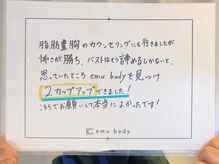 脂肪豊胸のカウンセリングにも行きましたが
怖さが勝ち、バストはもう諦めるしかないと、
思っていたところ emu body を見つけ
2カップアップできました！
こちらでお願いして本当によかったです！
emu body